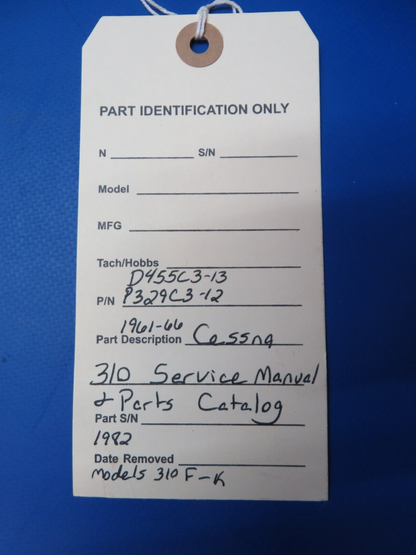 PART IDENTIFICATION ONLY
N S/N
Model
MFG
Tach/Hobbs
D455C3-13
P/N P329C3-12
1961-66
Part Description Cessna
310 Service Manual
& Parts Catalog
Part S/N
1982
Date Removed
Models 310 F-K